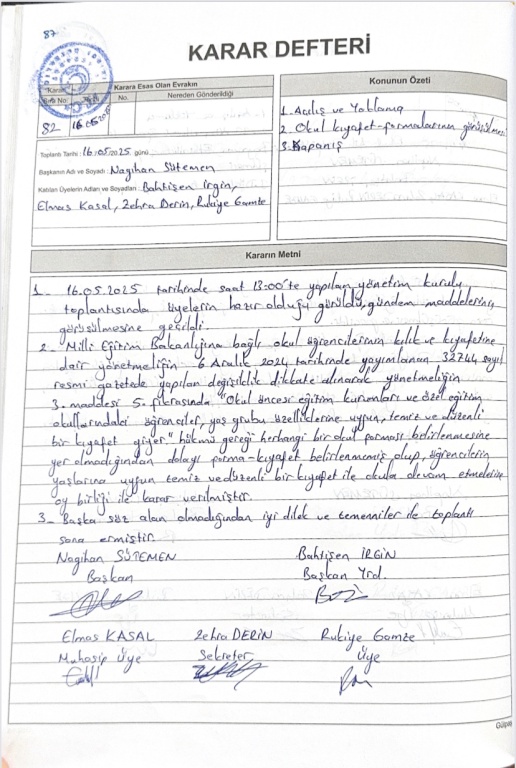 87
KARAR DEFTERİ
Karar
Sıra No
Karara Esas Olan Evrakın
No.
Nereden Gönderildiği
82
16.05
Toplantı Tarihi : 16/05/2025 günü
Başkanın Adı ve Soyadı : Nagihan Sütemen
Katılan Üyelerin Adları ve Soyadları : Bahtişen İrgin,
Elmas Kasal, Zehra Derin, Rukiye Gamze
Konunun Özeti
1. Açılış ve Yoklama
2. Okul kıyafet-formalarının görüşülmesi
3. Kapanış
Kararın Metni
1_ 16.05.2025 tarihinde saat 13:00'te yapılan yönetim kurulu
toplantısında üyelerin hazır olduğu görüldü, gündem maddelerinin
görüşülmesine geçildi.
2_ Milli Eğitim Bakanlığına bağlı okul öğrencilerinin kılık ve kıyafetine
dair yönetmeliğin 6 Aralık 2024 tarihinde yayımlanan 32744 sayılı
resmi gazetede yapılan değişiklik dikkate alınarak yönetmeliğin
3. maddesi 5. fıkrasında "Okul öncesi eğitim kurumları ve özel eğitim
okullarındaki öğrenciler, yaş grubu özelliklerine uygun, temiz ve düzenli
bir kıyafet giyer." hükmü gereği herhangi bir okul forması belirlenmesine
yer olmadığından dolayı forma-kıyafet belirlenmemiş olup, öğrencilerin
yaşlarına uygun temiz ve düzenli bir kıyafet ile okula devam etmelerine
oy birliği ile karar verilmiştir.
3_ Başka söz alan olmadığından iyi dilek ve temenniler ile toplantı
sona ermiştir.
Nagihan SÜTEMEN
Bahtişen İRGİN
Başkan
Başkan Yrd.
Elmas KASAL
Zehra DERİN
Rukiye Gamze
Muhasip Üye
Sekreter
Üye